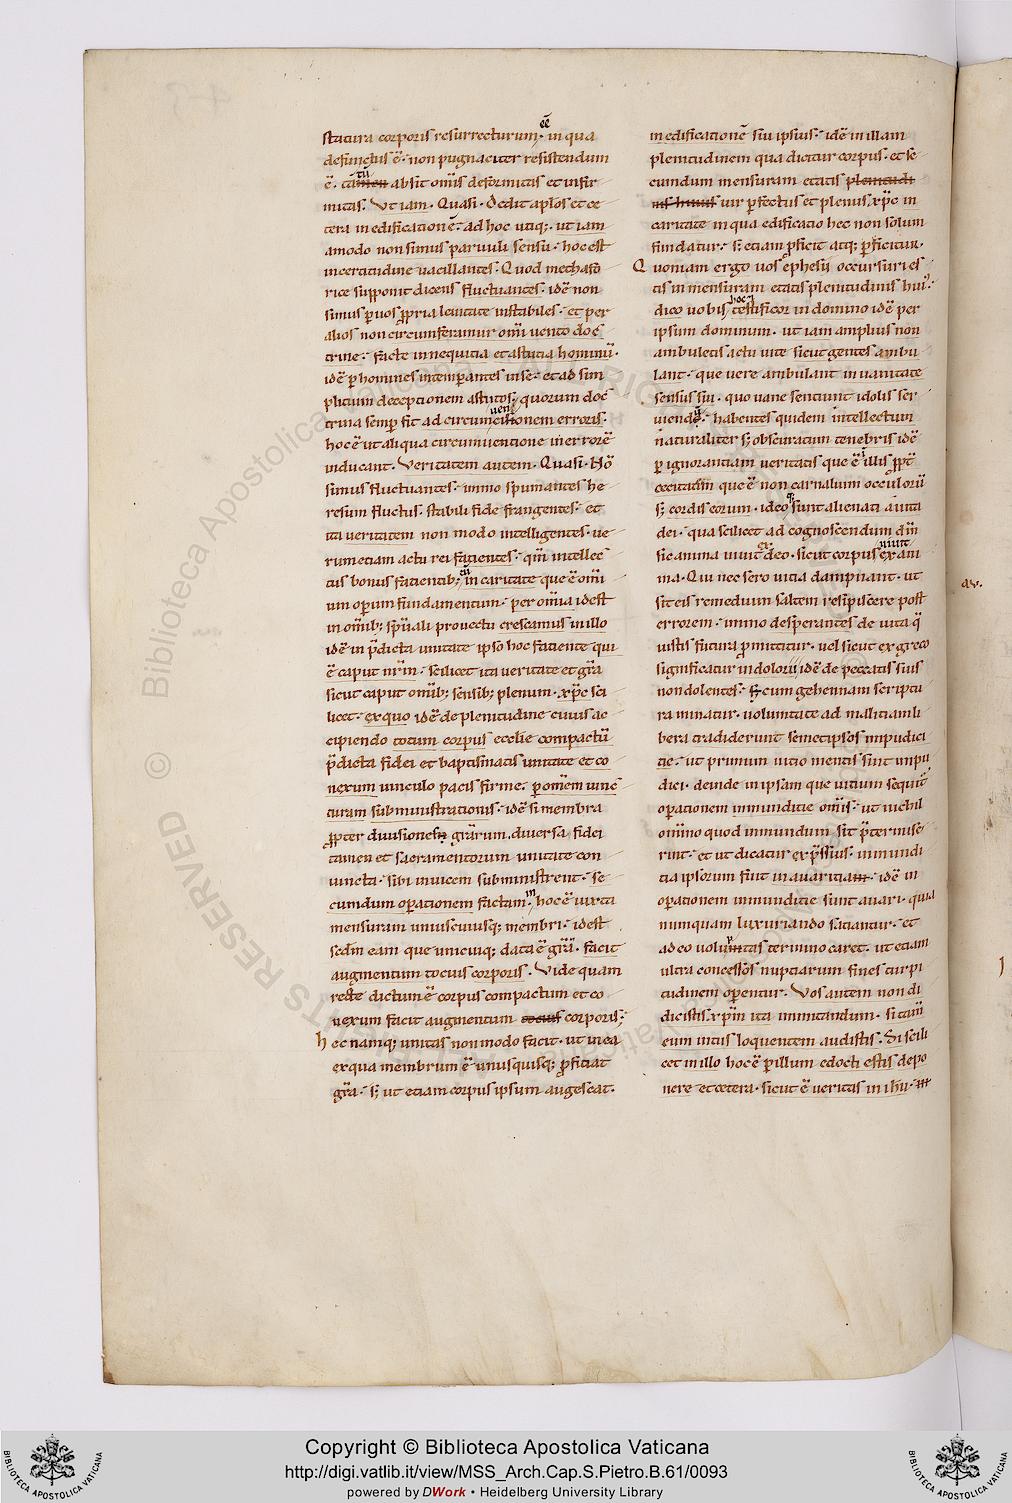 statura corporis resurrecturum · in qua
ēē
defunctus ē · non pugnaciter resistendum
ē · tam̄ absit om̄is deformitas et infir
mitas · Vt iam · Quasi · Dedit aplos et ce
tera in edificationē · ad hoc utiq; · ut iam
amodo non simus paruuli sensu · hoc est
incertitudine uacillantes · Quod
rice supponit dicens fluctuantes · idē non
simus per uos propria leuitate instabiles · et per
alios non circumferamur omī uento doc
trine · facte in nequitia et astutia hominū ·
idē per homines intemperantes in se · et ad sim
plicium deceptionem astutos · quorum doc
trina semper fit ad circum onem erroris ·
uenti
hoc ē ut aliqua circumuentione in errorē
inducant · Veritatem autem · Quasi · Nō
simus fluctuantes · immo spumantes he
resum fluctus · stabili fide frangentes · et
ita ueritatem non modo intelligentes · ue
rum etiam actu rei facientes · qm̄ intellec
tus bonus facientib; · in caritate que ē omī
um operum fundamentum · per omīa idest
in omīb; spūali prouectu crescamus in illo
idē in p̄dicta unitate ipso hoc faciente qui
ē caput nr̄m · scilicet ita ueritate et gr̄a
sicut caput omīb; sensib; plenum · xp̄c sci
licet · ex quo idē de plenitudine cuius ac
cipiendo totum corpus ecclie compactū
p̄dicta fidei et baptismatis unitate et co
nexum uinculo pacis firme · per omēm iunc
turam subministrationis · idē si membra
propter diuisionem grārum diuersa fidei
tamen et sacramentorum unitate con
iuncta · sibi inuicem subministrent · se
cundum operationem factam · hoc ē iuxta
mensuram uniuscuiusq; membri · idest
secdm eam que unicuiq; data ē grā · facit
augmentum totius corporis · Vide quam
recte dictum ē corpus compactum et co
nexum facit augmentum totius corporis;
hec namq; unitas non modo facit · ut in ea
ex qua membrum ē unusquisq; proficiat
grā · s; ut etiam corpus ipsum augescat ·
in edificationē sui ipsius · idē in illam
plenitudinem qua dicitur corpus · et se
cundum mensuram etatis plenitudi
nis huius uir perfectus et plenus xp̄c in
caritate in qua edificatio hec non solum
fundatur · s; etiam proficit atq; perficitur ·
Quoniam ergo uos ephesii occursuri es
tis in mensuram etatis plenitudinis hui
dico uobis testificor in domino idē per
hoc
ipsum dominum · ut iam amplius non
ambuletis actu uite sicut gentes ambu
lant · que uere ambulant in uanitate
sensus sui · quo uane sentiunt idolis ser
uiendo · habentes quidem intellectum
naturaliter s; obscuratum tenebris idē
per ignorantiam ueritatis que ē illis propt
cecitatem que ē non carnalium occulorū
s; cordis eorum · ideo sunt alienati a uita
dei · qua scilicet ad cognoscendum dm̄
sic anima uiuit deo · sicut corpus ex ani
ex
uiuit
ma · Qui nec sero uitia dampnant · ut
sit eis remedium saltem resipiscere post
errorem · immo desperantes de uita q̄
iustis futura promittitur · uel sicut ex greco
significatur indolorii idē de peccatis suis
non dolentes · cum gehennam scriptu
ra minatur · uoluntate ad malitiam li
bera tradiderunt semetipsos impudici
tie · ut primum uitio mentis sint inpu
dici · deinde in ipsam que uitium sequit̄
operationem inmunditie om̄is · ut nichil
omīno quod inmundum sit p̄termise
rint · et ut dicatur exp̄ssius · inmundi
tia ipsorum fuit in auaritiam · idē in
operationem inmunditie sunt auari · quia
numquam luxuriando satiantur · et
adeo uoluptas termino caret · ut etiam
ultra concessos nuptiarum fines turpi
tudinem operentur · Vos autem non di
dicistis xp̄m ita inmitandum · si tam̄
eum intus loquentem audistis · Si scili
cet in illo hoc ē per illum edocti estis depo
nere et cetera · sicut ē ueritas in ihū ·
Copyright © Biblioteca Apostolica Vaticana
http://digi.vatlib.it/view/MSS_Arch.Cap.S.Pietro.B.61/0093
powered by DWork • Heidelberg University Library
BIBLIOTECA APOSTOLICA VATICANA
BIBLIOTECA APOSTOLICA VATICANA